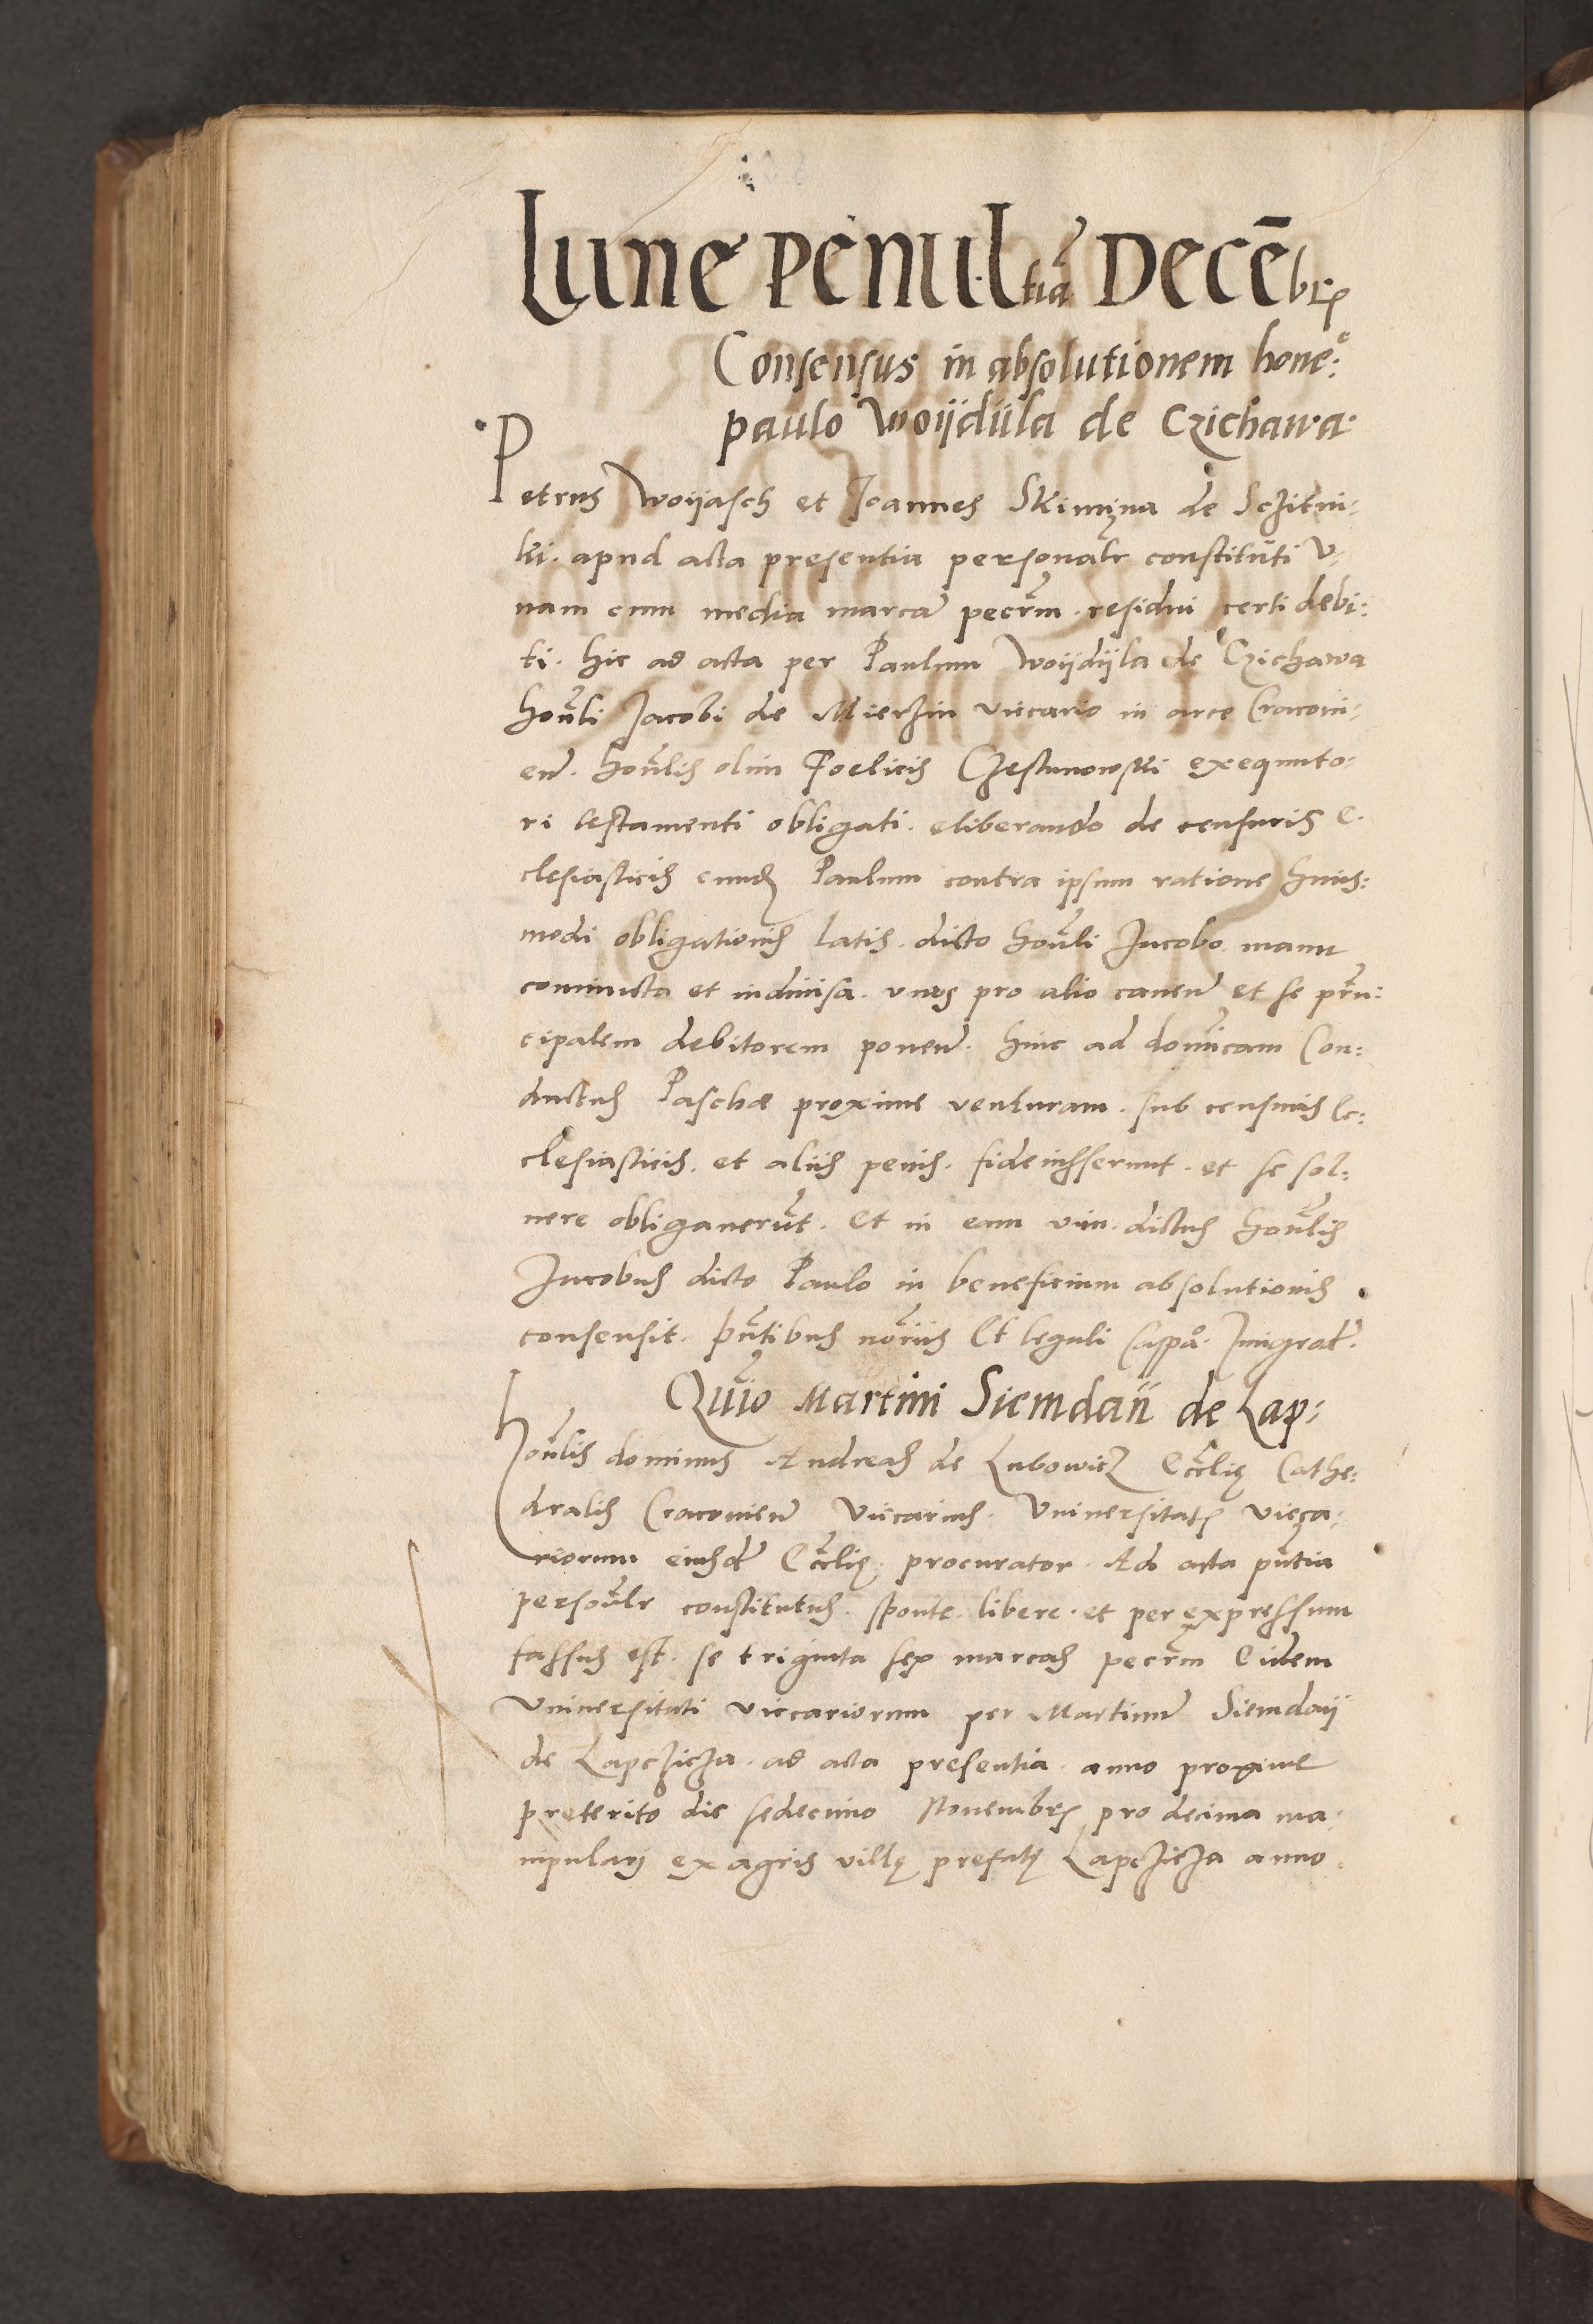 Lune Penultiā Decēbrꝭ
Consensus in absolutionem hone:
paulo Woÿdÿla de Czichawa
Petrus Woÿasch et Joannes Skimyna de Sczitni:
ki. apud acta presentia personalr constituti V:
nam cum media marcā pecc̄rm. residui certi debi:
ti. hic ad acta per Paulum Woÿdÿla de Czichawa
hon̄li Jacobi de Mierzin viccario in arce Cracovi:
eñ. hon̄lis olim Foelicis Czestunowski exequuto:
ri testamenti obligati. eliberando de censuris e.
clesiasticis eund Paulum contra ipsum ratione huius:
modi obligationis latis. dicto hon̄li Jacobo. manu
coniuncta et indiuisa. vnus pro alio caueñ et se prin:
cipalem debitorem poneñ. hinc ad domīcam Con:
ductus Paschæ proxime venturam. sub censuris Ec:
clesiasticis. et aliis penis. fideiusserunt. et se sol:
uere obligauerūt. Et in eam vim. dictus hon̄lis
Jacobus dicto Paulo in beneficium absolutionis
consensit. pn̄tibus no̅riis Et leguli Caspa.
Quīo Martini Siemdaÿ de Lap:
Hon̄lis dominus Andreas de Lubowicz Eccl̄ię Cathe:
dralis Cracovieñ viccarius. Vniuersitatꝭ vicca:
riorum eiusd̄ Eccl̄ię procurator. Ad acta pn̄tia
person̄lr constitutus. sponte. libere. et per expressum
fassus est. se triginta sex marcas pecc̄rm Eidem
Vniuersitati viccariorum per Martinū Siemdaÿ
de Lapczicza. ad acta presentia. anno proxime
preterito die sedecimo Nouembrꝭ pro decima ma:
nipulari ex agris villę prefatę Lapczicza anno